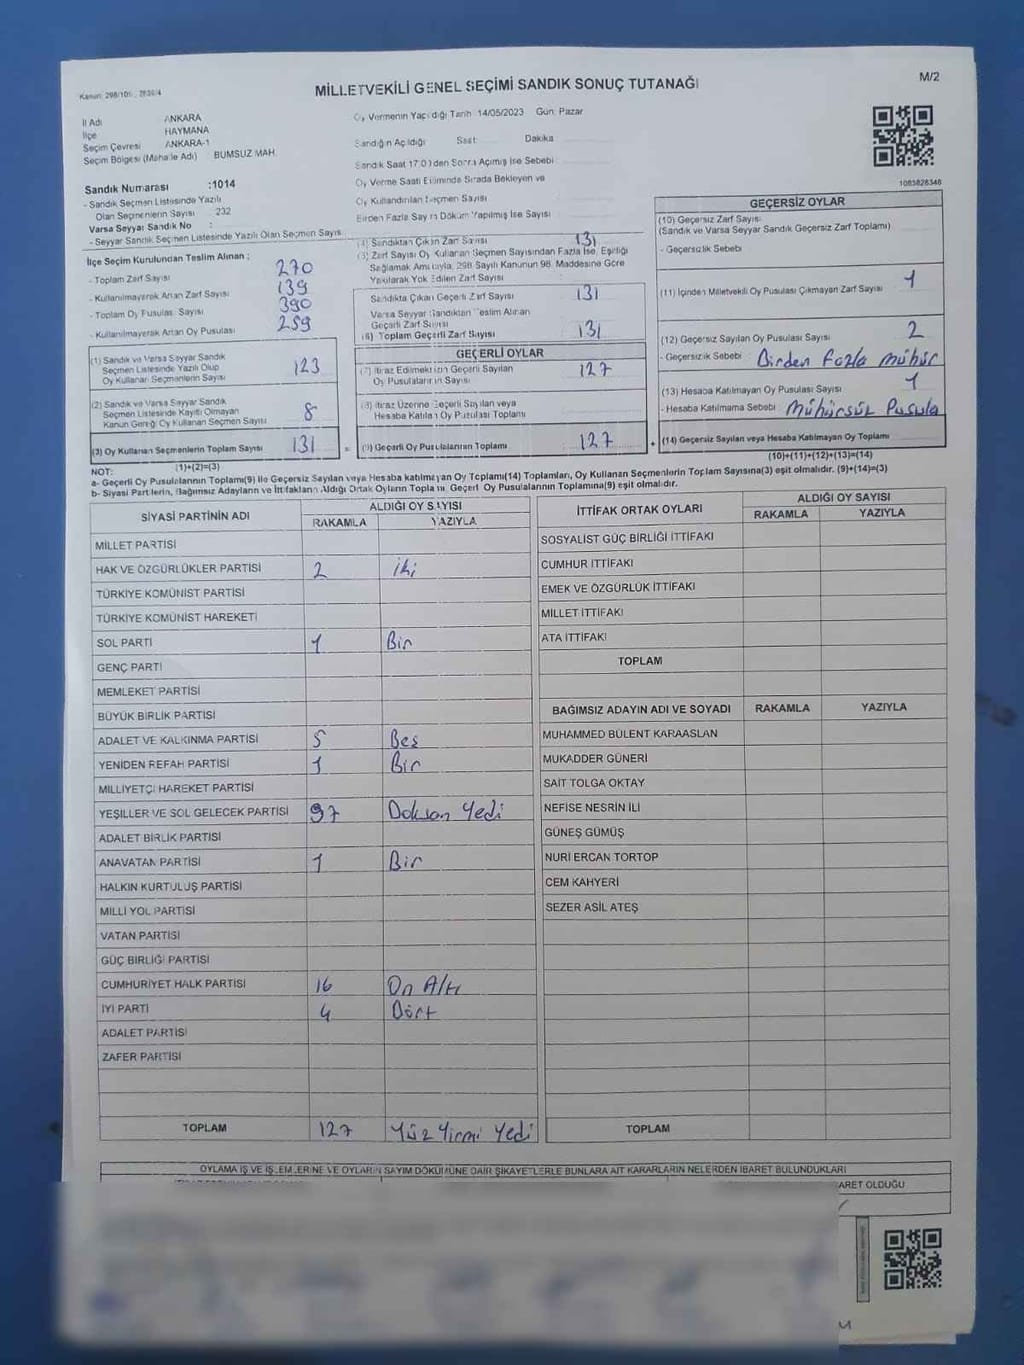 Kanun: 298/105, 2839/4
MİLLETVEKİLİ GENEL SEÇİMİ SANDIK SONUÇ TUTANAĞI
M/2
İl Adı ANKARA
İlçe HAYMANA
Seçim Çevresi ANKARA-1
Seçim Bölgesi (Mahalle Adı) BUMSUZ MAH.
Sandık Numarası :1014
- Sandık Seçmen Listesinde Yazılı
Olan Seçmenlerin Sayısı 232
Varsa Seyyar Sandık No :
- Seyyar Sandık Seçmen Listesinde Yazılı Olan Seçmen Sayıs
Oy Vermenin Yapıldığı Tarih 14/05/2023 Gün: Pazar
Sandığın Açıldığı Saat: Dakika
Sandık Saat 17:00 den Sonra Açılmış İse Sebebi
Oy Verme Saati Bitiminde Sırada Bekleyen ve
Oy Kullandırılan Seçmen Sayısı
Birden Fazla Sayım Döküm Yapılmış İse Sayısı
1083828348
İlçe Seçim Kurulundan Teslim Alınan ;
- Toplam Zarf Sayısı 270
- Kullanılmayarak Artan Zarf Sayısı 139
- Toplam Oy Pusulası Sayısı 390
- Kullanılmayarak Artan Oy Pusulası 259
(1) Sandık ve Varsa Seyyar Sandık
Seçmen Listesinde Yazılı Olup
Oy Kullanan Seçmenlerin Sayısı 123
(2) Sandık ve Varsa Seyyar Sandık
Seçmen Listesinde Kayıtlı Olmayan
Kanun Gereği Oy Kullanan Seçmen Sayısı 8
(3) Oy Kullanan Seçmenlerin Toplam Sayısı 131 =
(1)+(2)=(3)
(4) Sandıktan Çıkan Zarf Sayısı 131
(5) Zarf Sayısı Oy Kullanan Seçmen Sayısından Fazla İse, Eşitliği
Sağlamak Amacıyla, 298 Sayılı Kanunun 98. Maddesine Göre
Yakılarak Yok Edilen Zarf Sayısı
Sandıkta Çıkan Geçerli Zarf Sayısı 131
Varsa Seyyar Sandıktan Teslim Alınan
Geçerli Zarf Sayısı
(6) Toplam Geçerli Zarf Sayısı 131
GEÇERLİ OYLAR
(7) İtiraz Edilmeksizin Geçerli Sayılan
Oy Pusulalarının Sayısı 127
(8) İtiraz Üzerine Geçerli Sayılan veya
Hesaba Katılan Oy Pusulası Toplamı
(9) Geçerli Oy Pusulalarının Toplamı 127 +
GEÇERSİZ OYLAR
(10) Geçersiz Zarf Sayısı
(Sandık ve Varsa Seyyar Sandık Geçersiz Zarf Toplamı)
- Geçersizlik Sebebi
(11) İçinden Milletvekili Oy Pusulası Çıkmayan Zarf Sayısı 1
(12) Geçersiz Sayılan Oy Pusulası Sayısı 2
- Geçersizlik Sebebi : Birden fazla mühür
(13) Hesaba Katılmayan Oy Pusulası Sayısı 1
- Hesaba Katılmama Sebebi : Mühürsüz Pusula
(14) Geçersiz Sayılan veya Hesaba Katılmayan Oy Toplamı
(10)+(11)+(12)+(13)=(14)
NOT:
a- Geçerli Oy Pusulalarının Toplamı(9) ile Geçersiz Sayılan veya Hesaba katılmayan Oy Toplamı(14) Toplamları, Oy Kullanan Seçmenlerin Toplam Sayısına(3) eşit olmalıdır. (9)+(14)=(3)
b- Siyasi Partilerin, Bağımsız Adayların ve İttifakların Aldığı Ortak Oyların Toplamı, Geçerli Oy Pusulalarının Toplamına(9) eşit olmalıdır.
SİYASİ PARTİNİN ADI ALDIĞI OY SAYISI
RAKAMLA YAZIYLA
MİLLET PARTİSİ
HAK VE ÖZGÜRLÜKLER PARTİSİ 2 iki
TÜRKİYE KOMÜNİST PARTİSİ
TÜRKİYE KOMÜNİST HAREKETİ
SOL PARTİ 1 Bir
GENÇ PARTİ
MEMLEKET PARTİSİ
BÜYÜK BİRLİK PARTİSİ
ADALET VE KALKINMA PARTİSİ 5 Beş
YENİDEN REFAH PARTİSİ 1 Bir
MİLLİYETÇİ HAREKET PARTİSİ
YEŞİLLER VE SOL GELECEK PARTİSİ 97 Doksan Yedi
ADALET BİRLİK PARTİSİ
ANAVATAN PARTİSİ 1 Bir
HALKIN KURTULUŞ PARTİSİ
MİLLİ YOL PARTİSİ
VATAN PARTİSİ
GÜÇ BİRLİĞİ PARTİSİ
CUMHURİYET HALK PARTİSİ 16 On Altı
İYİ PARTİ 4 Dört
ADALET PARTİSİ
ZAFER PARTİSİ
TOPLAM 127 Yüz Yirmi Yedi
İTTİFAK ORTAK OYLARI ALDIĞI OY SAYISI
RAKAMLA YAZIYLA
SOSYALİST GÜÇ BİRLİĞİ İTTİFAKI
CUMHUR İTTİFAKI
EMEK VE ÖZGÜRLÜK İTTİFAKI
MİLLET İTTİFAKI
ATA İTTİFAKI
TOPLAM
BAĞIMSIZ ADAYIN ADI VE SOYADI RAKAMLA YAZIYLA
MUHAMMED BÜLENT KARAASLAN
MUKADDER GÜNERİ
SAİT TOLGA OKTAY
NEFİSE NESRİN İLİ
GÜNEŞ GÜMÜŞ
NURİ ERCAN TORTOP
CEM KAHYERİ
SEZER ASİL ATEŞ
TOPLAM
OYLAMA İŞ VE İŞLEMLERİNE VE OYLARIN SAYIM DÖKÜMÜNE DAİR ŞİKAYETLERLE BUNLARA AİT KARARLARIN NELERDEN İBARET BULUNDUKLARI
ARET OLDUĞU